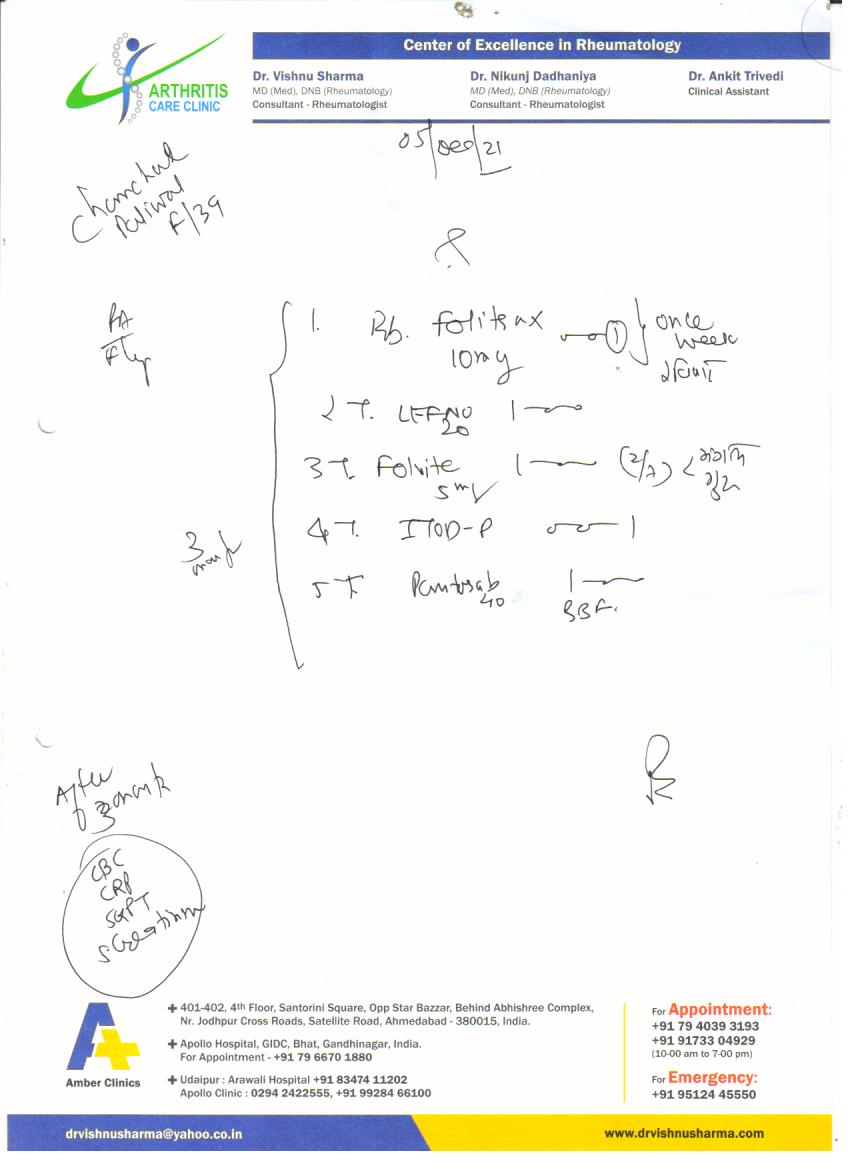 Center of Excellence in Rheumatology
ARTHRITIS
CARE CLINIC
Dr. Vishnu Sharma
MD (Med), DNB (Rheumatology)
Consultant - Rheumatologist
Dr. Nikunj Dadhaniya
MD (Med), DNB (Rheumatology)
Consultant - Rheumatologist
Dr. Ankit Trivedi
Clinical Assistant
05/Dec/21
Paliwal
F/39
RA
1. Folitrax
10mg
1
once
week
2 T. LEFNO 1
20
3 T. Folvite 1 (2/7)
5 mg
4 T. ITOD-P 1
5 T Pantosab 1
40
BBF.
3
After
3
CBC
CRP
SGPT
S. Creatinine
Amber Clinics
401-402, 4th Floor, Santorini Square, Opp Star Bazzar, Behind Abhishree Complex,
Nr. Jodhpur Cross Roads, Satellite Road, Ahmedabad - 380015, India.
Apollo Hospital, GIDC, Bhat, Gandhinagar, India.
For Appointment - +91 79 6670 1880
Udaipur : Arawali Hospital +91 83474 11202
Apollo Clinic : 0294 2422555, +91 99284 66100
For Appointment:
+91 79 4039 3193
+91 91733 04929
(10-00 am to 7-00 pm)
For Emergency:
+91 95124 45550
drvishnusharma@yahoo.co.in
www.drvishnusharma.com